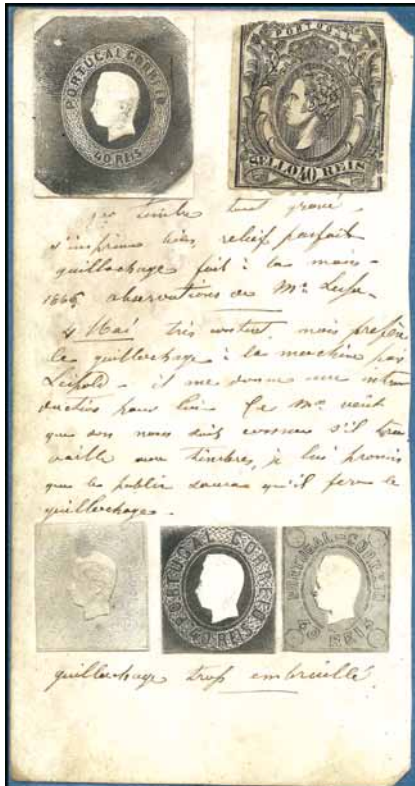 PORTUGAL CORREIO
40 REIS
PORTUGAL
SELLO 40 REIS
timbre tout gravé
s'imprime bien, relief parfait
guillochage fait à la main -
1865, observations de Mr
4 Mai très content, mais préfère
le guillochage à la machine par
Leipold - il me donne une intro
duction pour lui. Ce Mr veut
que son nom soit connu s'il tra
vaille aux timbres, je lui promis
que le public saura qu'il fera le
guillochage -
PORTUGAL CORREIO
40 REIS
PORTUGAL CORREIO
REIS
guillochage trop embrouillé